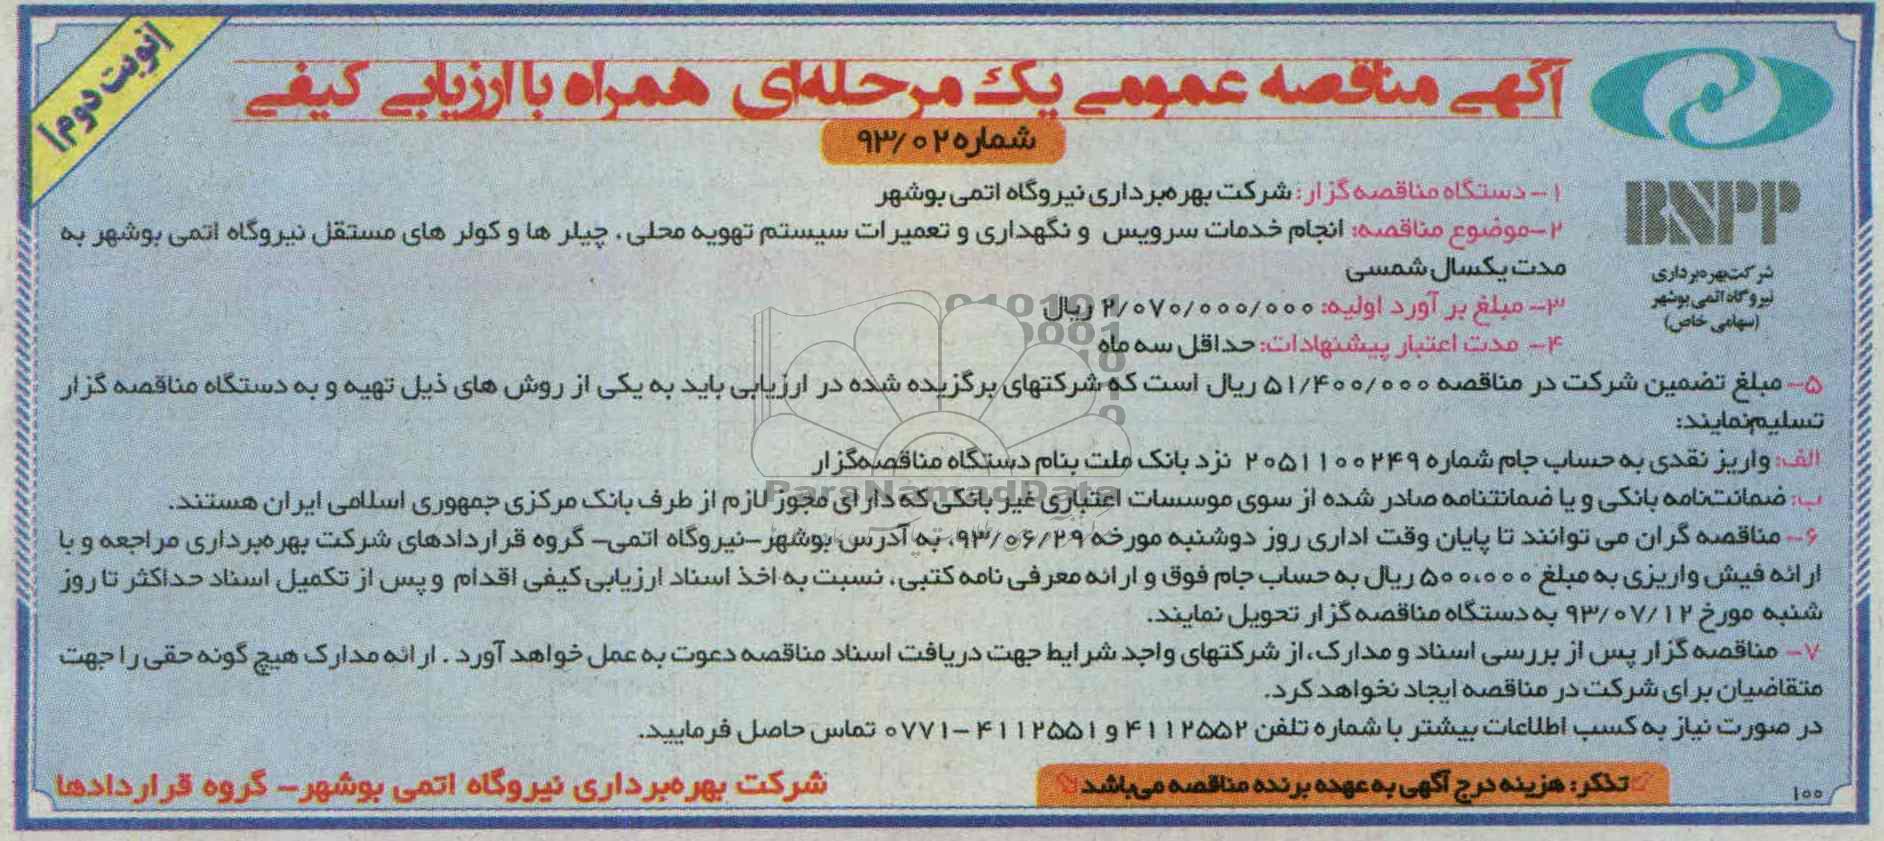 نوبت دوم
آگهی مناقصه عمومی یک مرحله‌ای همراه با ارزیابی کیفی
شماره ۹۳/۰۲
BNPP
شرکت بهره‌برداری
نیروگاه اتمی بوشهر
(سهامی خاص)
۱- دستگاه مناقصه گزار: شرکت بهره‌برداری نیروگاه اتمی بوشهر
۲-موضوع مناقصه: انجام خدمات سرویس و نگهداری و تعمیرات سیستم تهویه محلی، چیلر ها و کولر های مستقل نیروگاه اتمی بوشهر به
مدت یکسال شمسی
۳- مبلغ بر آورد اولیه: ۲/۰۷۰/۰۰۰/۰۰۰ ریال
۴- مدت اعتبار پیشنهادات: حداقل سه ماه
۵- مبلغ تضمین شرکت در مناقصه ۵۱/۴۰۰/۰۰۰ ریال است که شرکتهای برگزیده شده در ارزیابی باید به یکی از روش های ذیل تهیه و به دستگاه مناقصه گزار
تسلیم‌نمایند:
الف: واریز نقدی به حساب جام شماره ۲۰۵۱۱۰۰۲۴۹ نزد بانک ملت بنام دستگاه مناقصه‌گزار
ب: ضمانت‌نامه بانکی و یا ضمانتنامه صادر شده از سوی موسسات اعتباری غیر بانکی که دارای مجوز لازم از طرف بانک مرکزی جمهوری اسلامی ایران هستند.
۶- مناقصه گران می توانند تا پایان وقت اداری روز دوشنبه مورخه ۹۳/۰۶/۲۹، به آدرس بوشهر-نیروگاه اتمی- گروه قراردادهای شرکت بهره‌برداری مراجعه و با
ارائه فیش واریزی به مبلغ ۵۰۰،۰۰۰ ریال به حساب جام فوق و ارائه معرفی نامه کتبی، نسبت به اخذ اسناد ارزیابی کیفی اقدام و پس از تکمیل اسناد حداکثر تا روز
شنبه مورخ ۹۳/۰۷/۱۲ به دستگاه مناقصه گزار تحویل نمایند.
۷- مناقصه گزار پس از بررسی اسناد و مدارک، از شرکتهای واجد شرایط جهت دریافت اسناد مناقصه دعوت به عمل خواهد آورد. ارائه مدارک هیچ گونه حقی را جهت
متقاضیان برای شرکت در مناقصه ایجاد نخواهد کرد.
در صورت نیاز به کسب اطلاعات بیشتر با شماره تلفن ۴۱۱۲۵۵۲ و ۴۱۱۲۵۵۱-۰۷۷۱ تماس حاصل فرمایید.
تذکر: هزینه درج آگهی به عهده برنده مناقصه می‌باشد
شرکت بهره‌برداری نیروگاه اتمی بوشهر- گروه قراردادها
۱۰۰
ParsNamadData